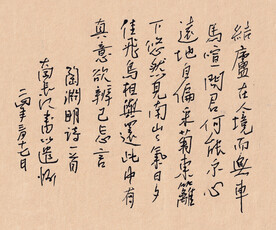 結廬在人境而無車
馬喧問君何能尔心
遠地自偏采菊東籬
下悠然見南山々氣日夕
佳飛鳥相與還此中有
真意欲辨已忘言
陶淵明詩一首
書以遣
月十七日